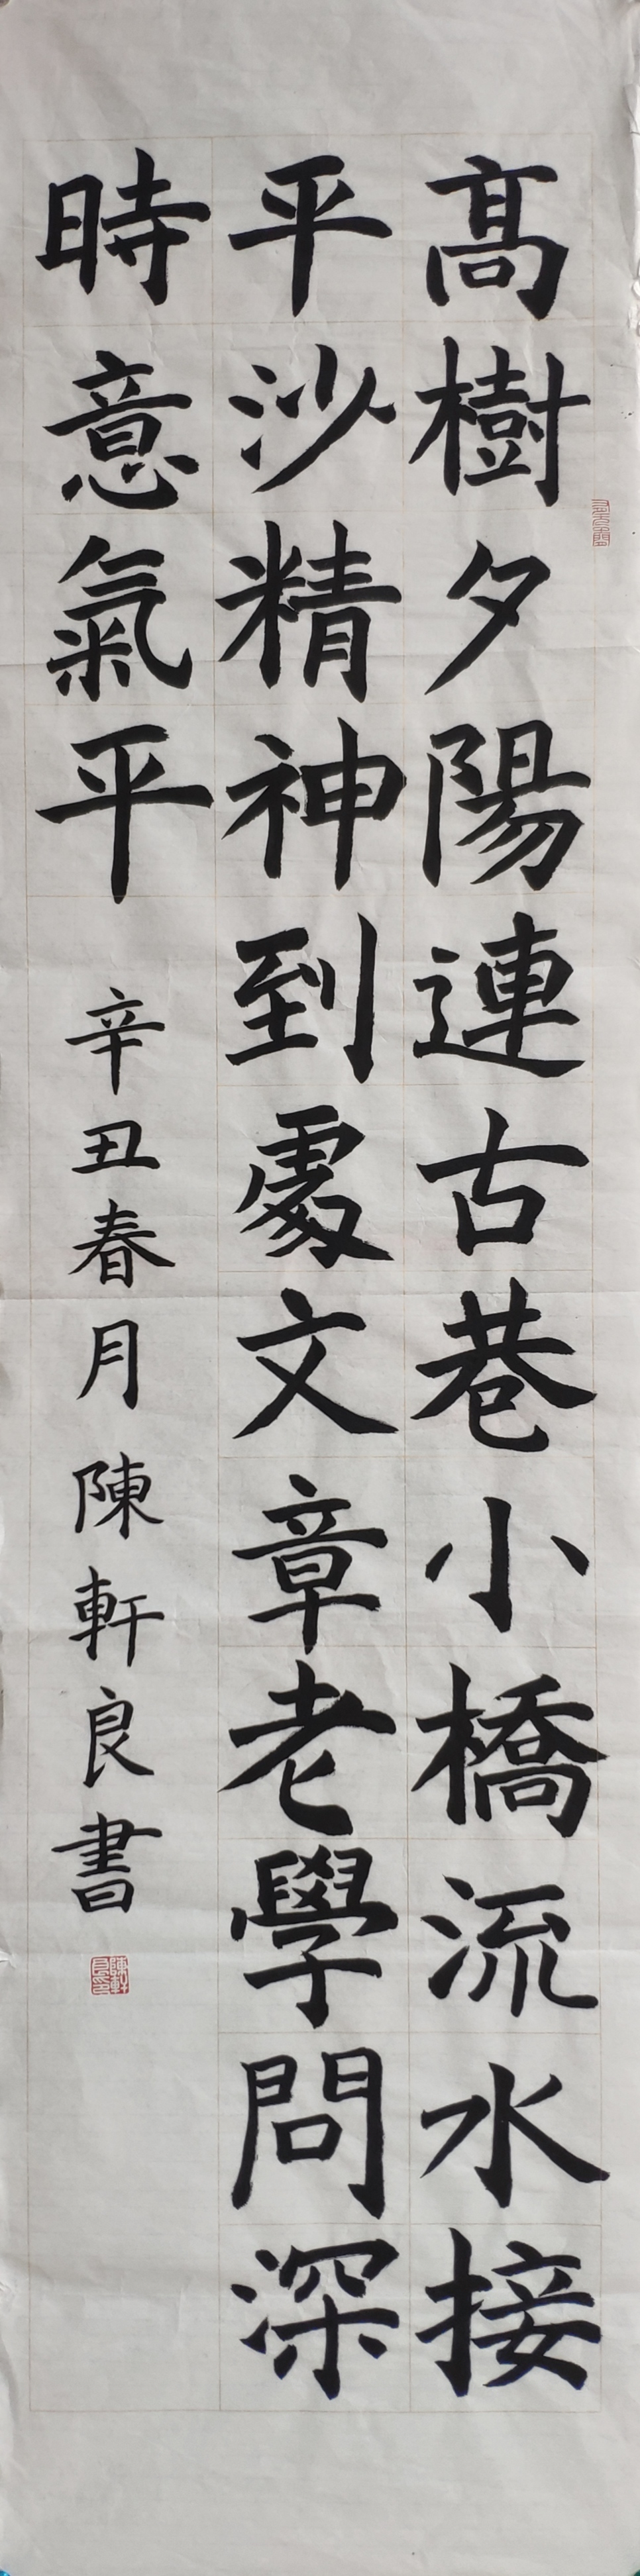 高樹夕陽連古巷小橋流水接
平沙精神到處文章老學問深
時意氣平
辛丑春月陳軒良書
陳軒良印